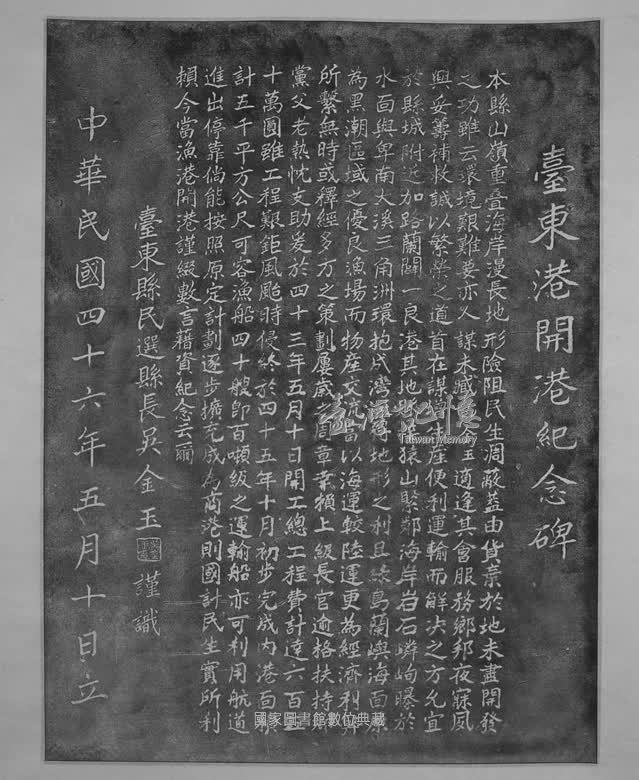 臺東港開港紀念碑
本縣山嶺重叠海岸漫長地形險阻民生凋敝蓋由貨棄於地未盡開發
之功雖云環境艱難要亦人謀未臧 玉適逢其會服務鄉邦夜寐夙
興妥籌補救誠以繁榮之道首在謀增 產便利運輸而解決之方允宜
於縣城附近加路蘭闢一良港其地 猿山緊鄰海岸岩石嶙峋曝於
水面與卑南大溪三角洲環抱成灣 地形之利且綠島蘭嶼海面
為黑潮區域之優良漁場而物產交流 以海運較陸運更為經濟利
所繫無時或釋經多方之策劃屢歲 章幸賴上級長官逾格扶持
黨父老熱忱支助爰於四十三年五月十日開工總工程費計達六百
十萬圓雖工程艱鉅風颱時侵終於四十五年十月初步完成內港面
計五千平方公尺可容漁船四十艘即百噸級之運輸船亦可利用航道
進出停靠倘能按照原定計劃逐步擴充成為商港則國計民生實所利
賴今當漁港開港謹綴數言藉資紀念云爾
臺東縣民選縣長吳金玉 謹識
中華民國四十六年五月十日立
臺灣記憶
Taiwan Memory
國家圖書館數位典藏